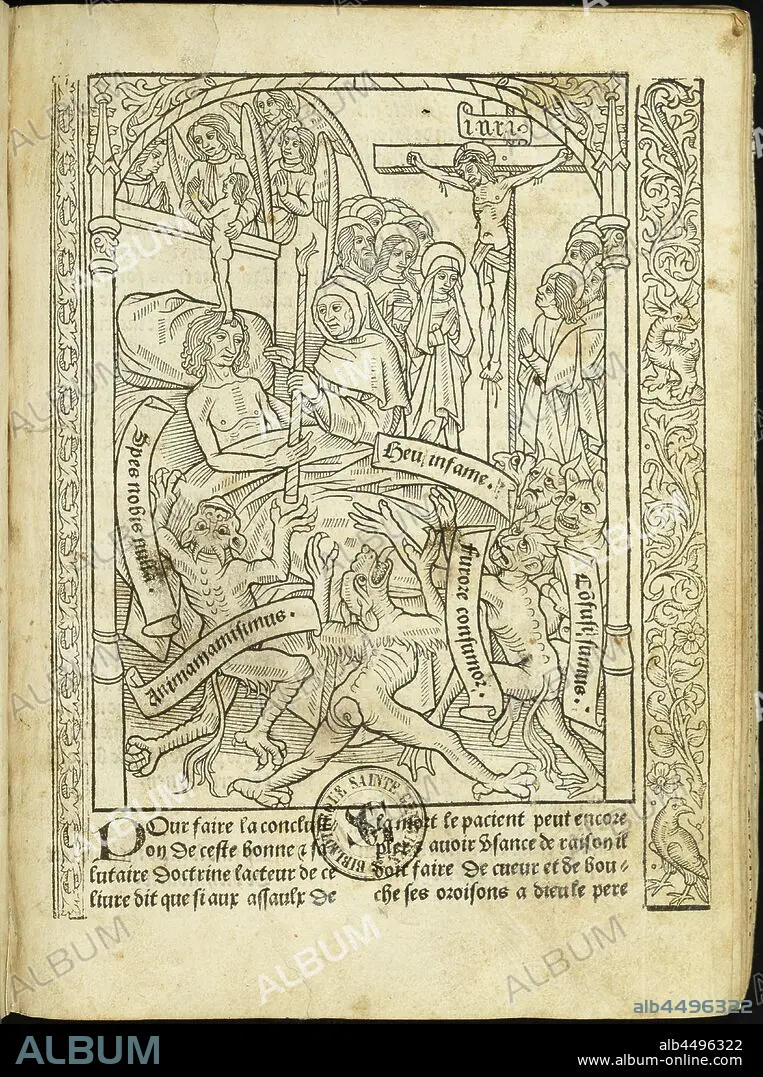 inri
Spes nobis nulla.
Heu infame.
Animam amisimus.
furore consumor.
Cōfusi sumus.
POur faire la conclusi
on de ceste bonne &
lutaire doctrine lacteur de ce
liure dit que si aux assaulx de
la mort le pacient peut encore
auoir vsance de raison il
doit faire de cueur et de bou-
che ses oroisons a dieu le pere
BIBLIOTHEQUE SAINTE
ALBUM
alb4496322
ALBUM
alb4496322
www.album-online.com